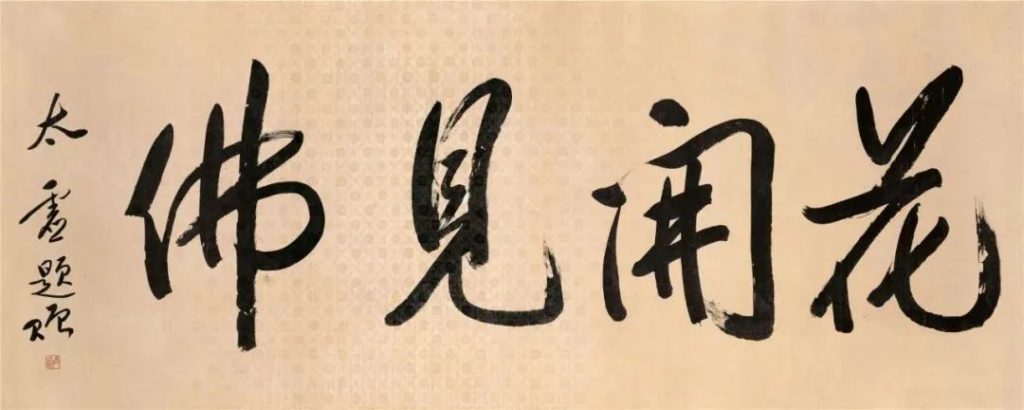 花開見佛
太虛題贈